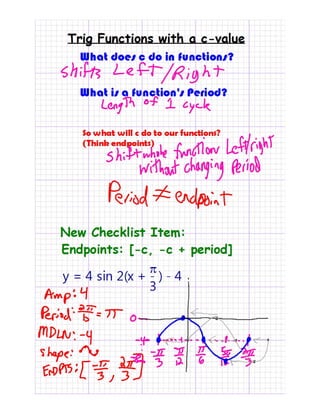 Trig Functions with a c-value
What does c do in functions?
shifts Left/Right
What is a function's Period?
Length of 1 cycle
So what will c do to our functions?
(Think endpoints)
Shift whole function Left/right
without changing Period
Period ≠ endpoint
New Checklist Item:
Endpoints: [-c, -c + period]
y = 4 sin 2(x + π/3) - 4
Amp: 4
Period: 2π/b = π
MDLN: -4
Shape:
ENDPTS: [-π/3, 2π/3]
0
-4
-π/3 -π/2 π/6 2π/3